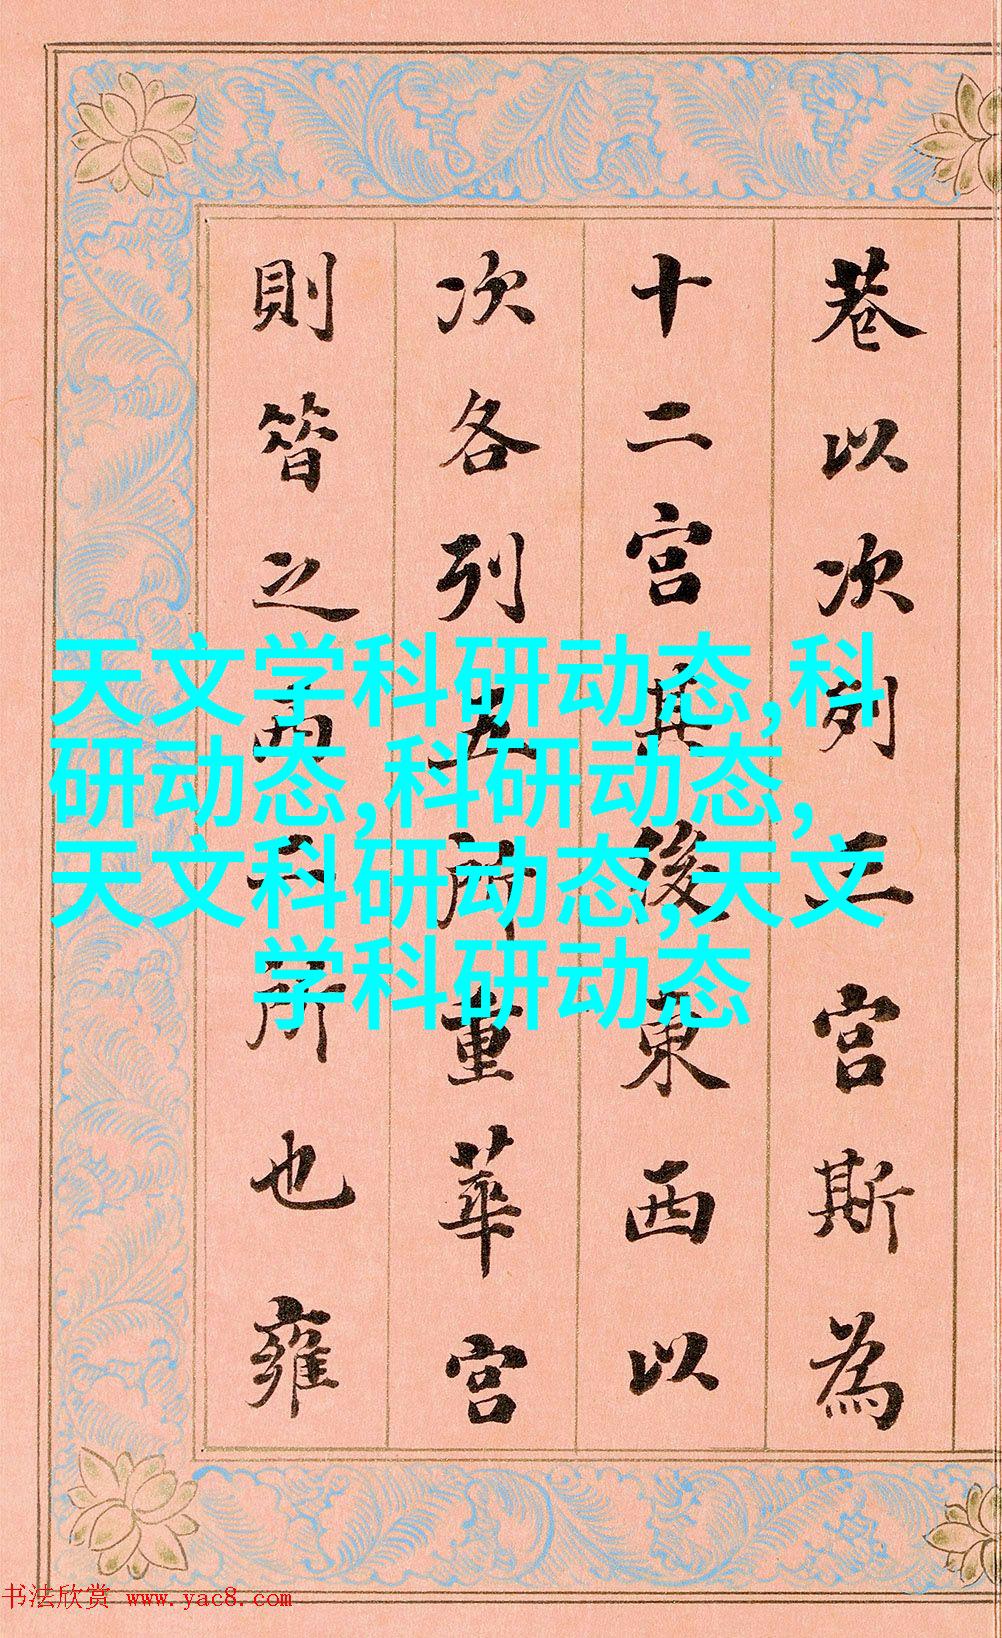 巷以次列三宫斯為
十二宫其後東西以
次各列五所重華宫
則昔之西二所也雍
天文学科研动态,科
研动态,科研动态,
天文科研动态,天文
学科研动态
书法欣赏 www.yac8.com